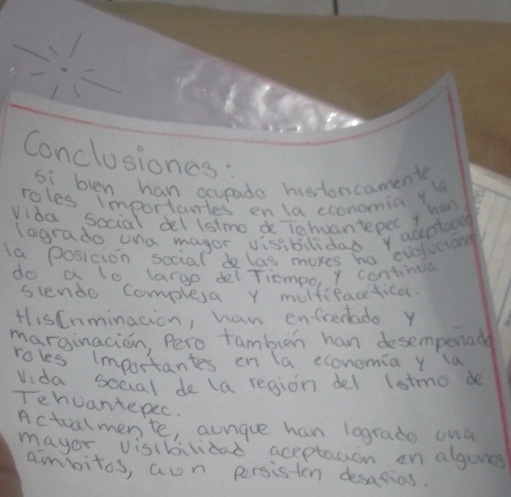 Conclusiones:
Si bien han ocupado historicamente
roles importantes en la economia y la
vida social del Istmo de Tehuantepec y han
logrado una mayor visibilidad y aceptación
la posición social de las muxes ha evoluciona
do a lo largo del Tiempo, y continua
siendo compleja y multifacética.
Hiscriminación, han enfrentado y
marginación, pero también han desempeñado
roles importantes en la economía y la
vida social de la región del Istmo de
Tehuantepec.
Actualmente, aunque han logrado una
mayor visibilidad aceptación en algunos
ámbitos, aun persisten desafios.